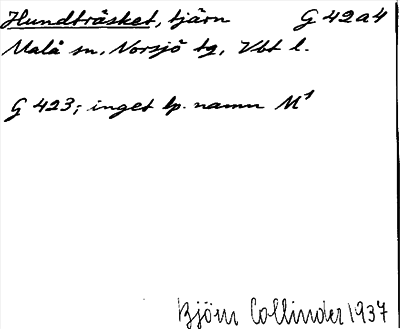 Hundträsket, tjärn G 42a4
Malå sn, Norsjö tg, Vbt l.
G 423; inget lp. namn M¹
Björn Collinder 1937